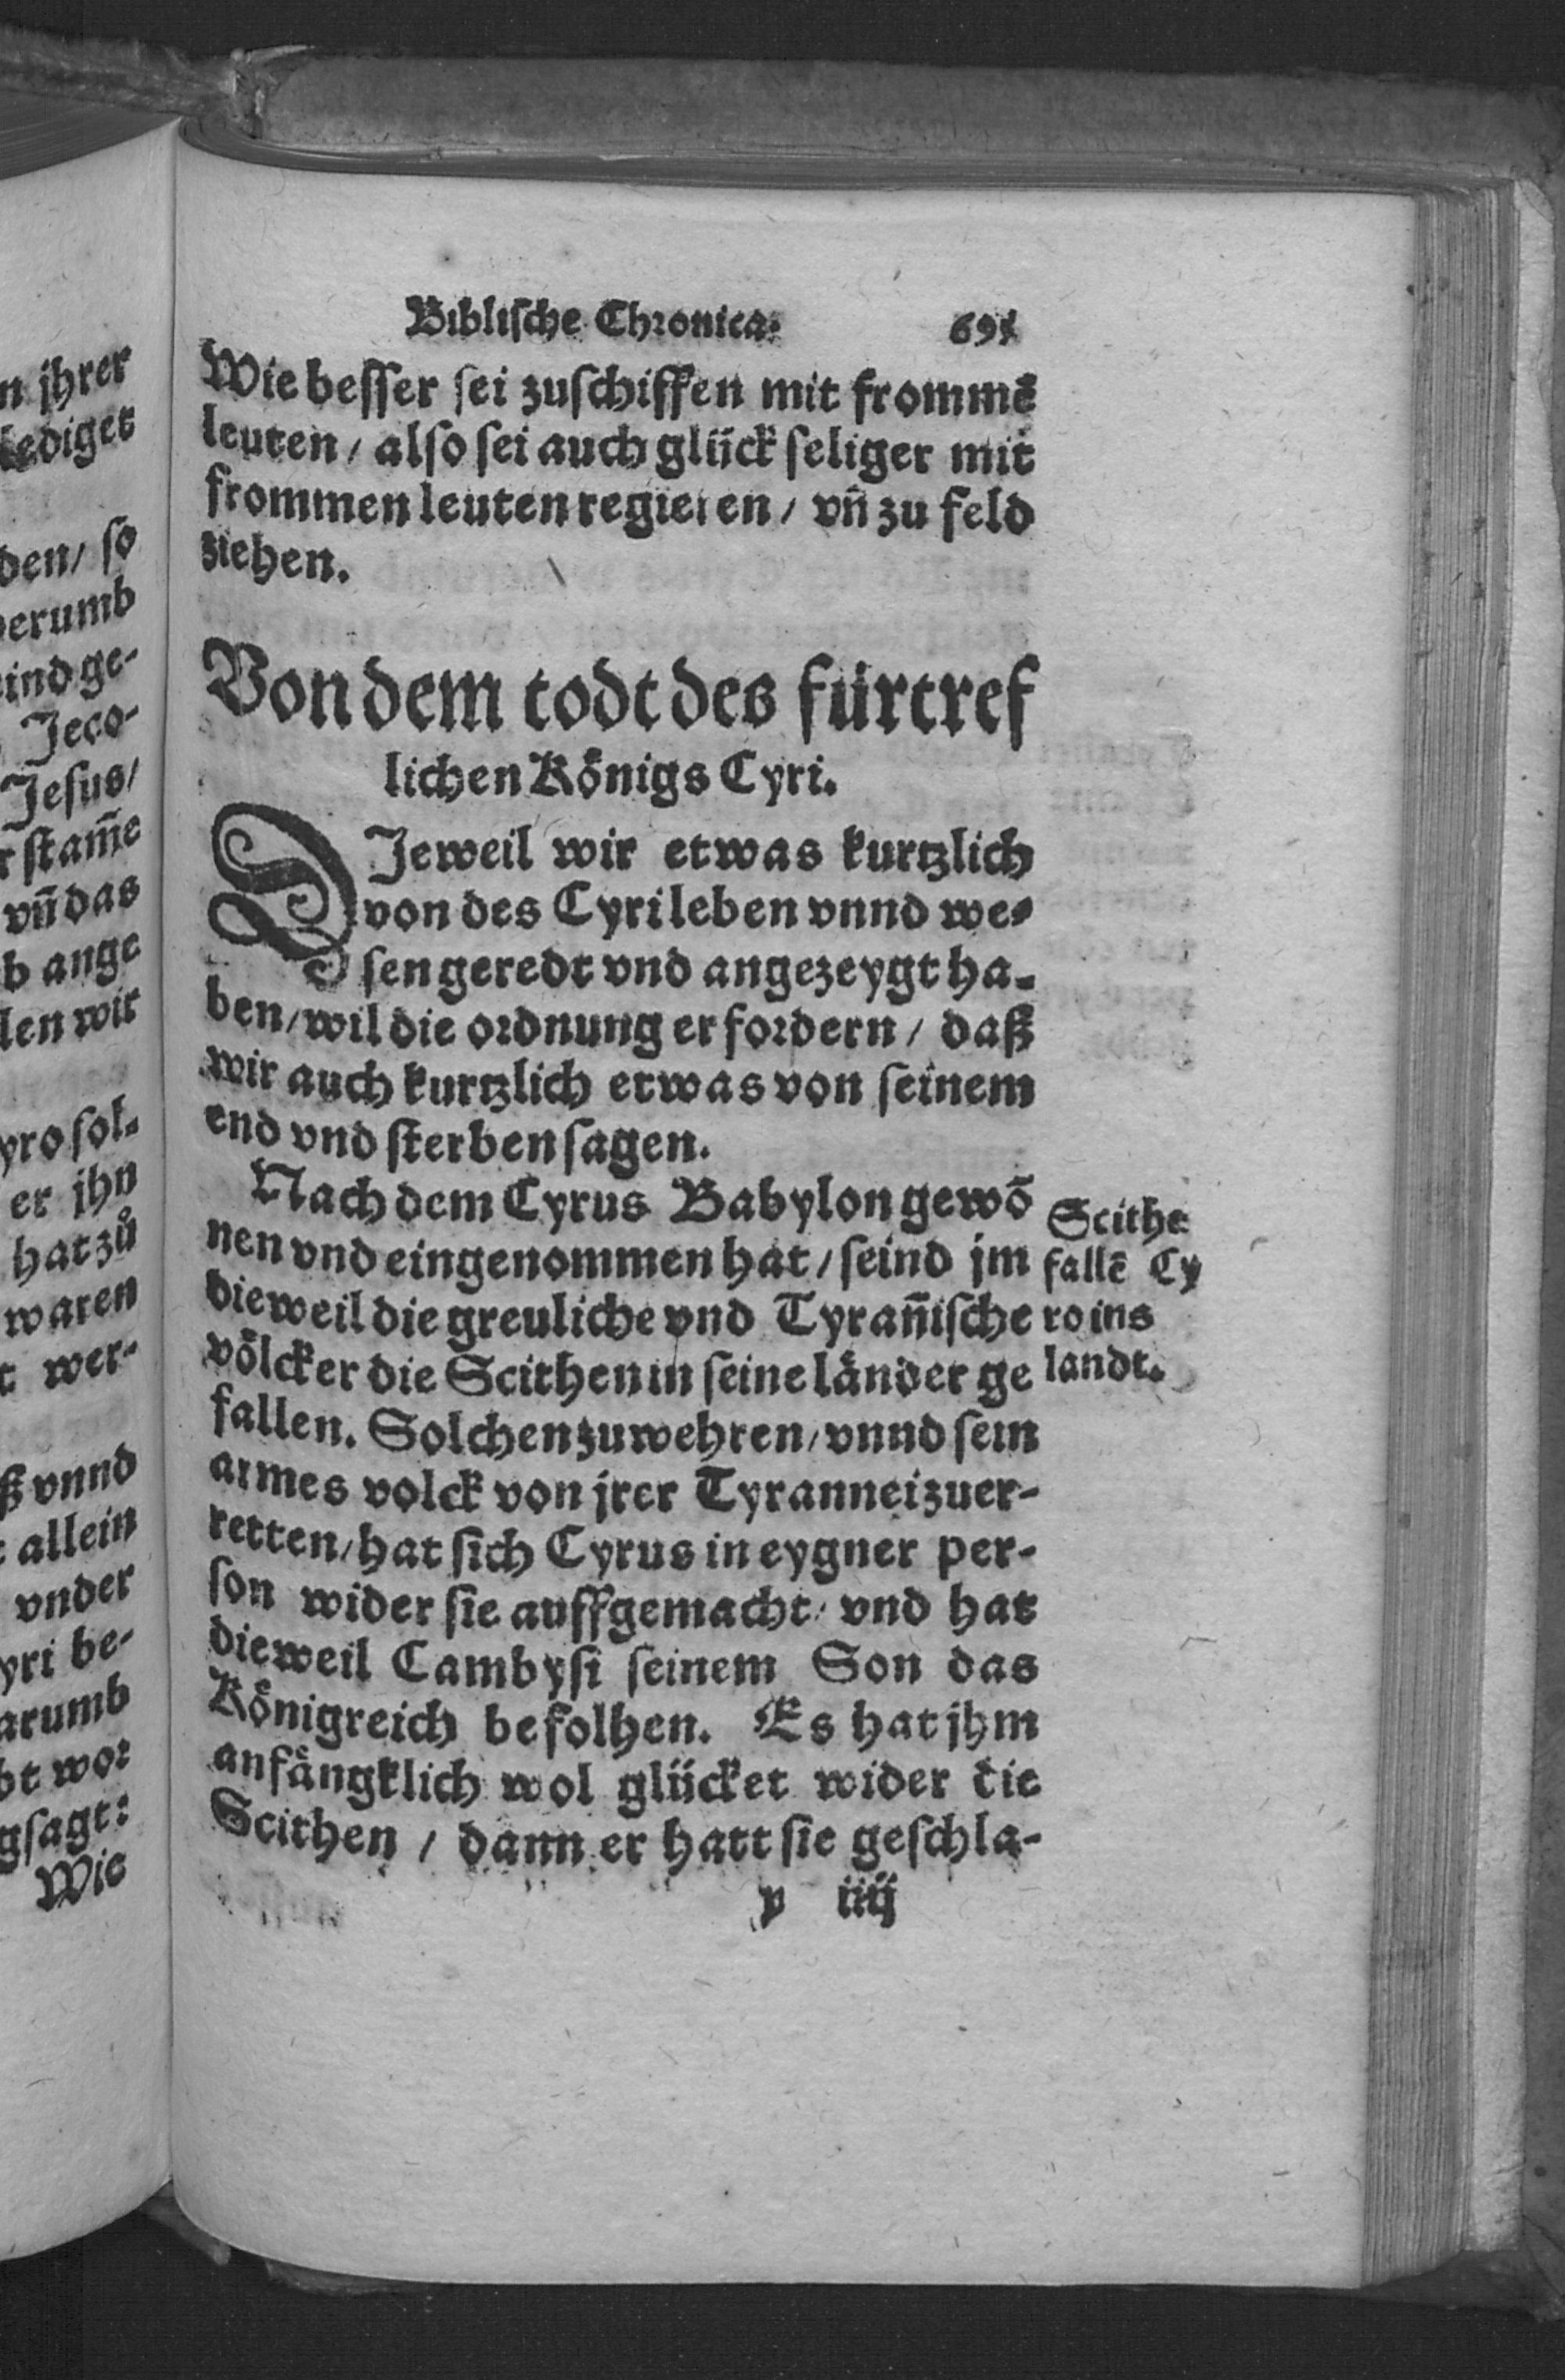 n jhrer
lediget
den/ so
derumb
ind ge-
Jeco-
Jesus/
r stam̃e
vn̄ das
b ange
len wir
yro sol-
er jhn
hat zů
waren
t wer-
ß vnnd
allein
vnder
yri be-
arumb
bt wor
gsagt:
Wie
Biblische Chronica. 691
Wie besser sei zuschiffen mit frommē
leuten/ also sei auch glück seliger mit
frommen leuten regieren/ vn̄ zu feld
ziehen.
Von dem todt des fürtref
lichen Königs Cyri.
DJeweil wir etwas kurtzlich
von des Cyri leben vnnd we-
sen geredt vnd angezeygt ha-
ben/ wil die ordnung erfordern/ daß
wir auch kurtzlich etwas von seinem
end vnd sterben sagen.
Nach dem Cyrus Babylon gewō
nen vnd eingenommen hat/ seind jm
dieweil die greuliche vnd Tyran̄ische
völcker die Scithen in seine länder ge
fallen. Solchen zuwehren/ vnnd sein
armes volck von jrer Tyrannei zuer-
retten/ hat sich Cyrus in eygner per-
son wider sie auffgemacht/ vnd hat
dieweil Cambysi seinem Son das
Königreich befolhen. Es hat jhm
anfängklich wol glücket wider die
Scithen/ dann er hatt sie geschla-
v iiij
Scithe
fallē Cy
ro ins
landt.